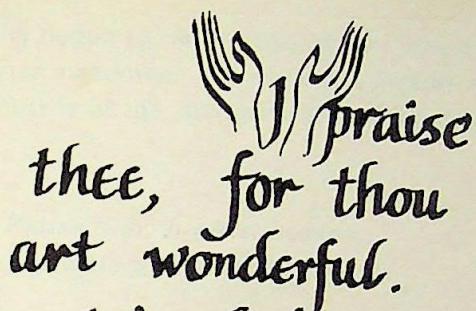 I praise
thee, for thou
art wonderful.